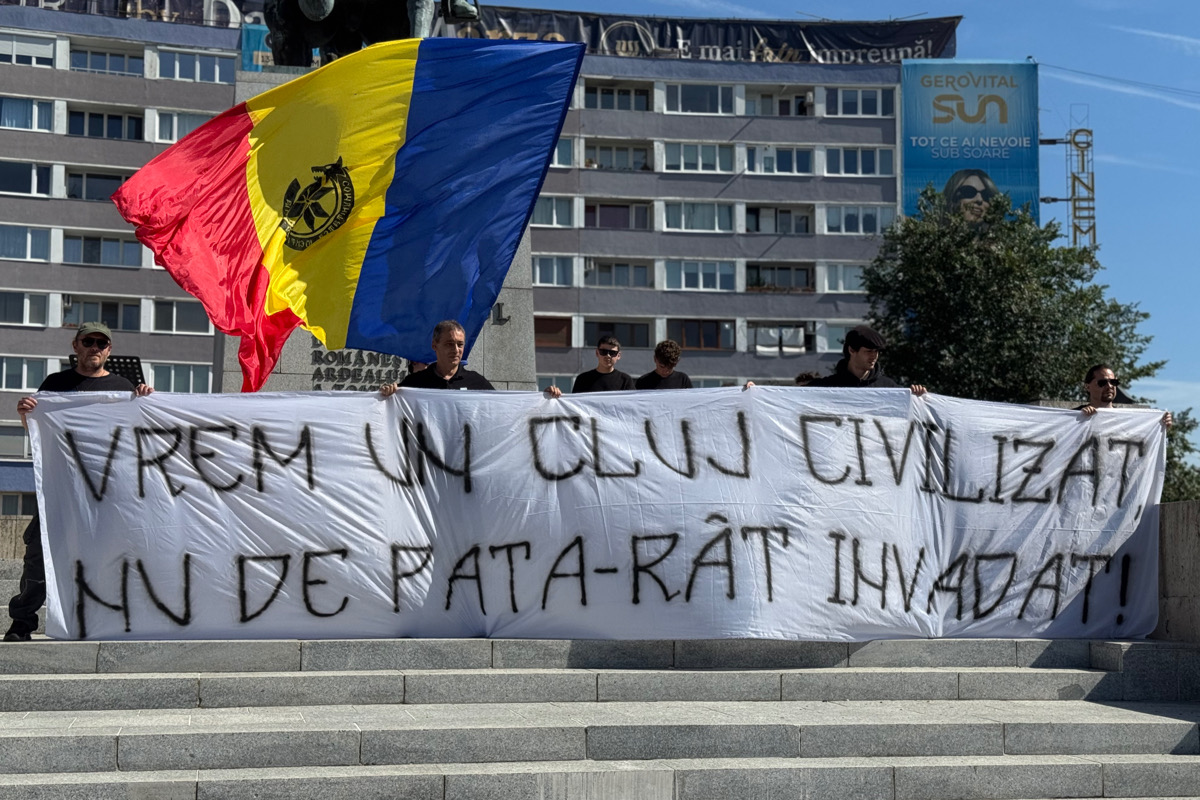 E mai împreună!
GEROVITAL
SUN
TOT CE AI NEVOIE
SUB SOARE
CINEMA
ROMÂNE
ARDEALU
VREM UN CLUJ CIVILIZAT,
NU DE PATA-RÂT INVADAT!